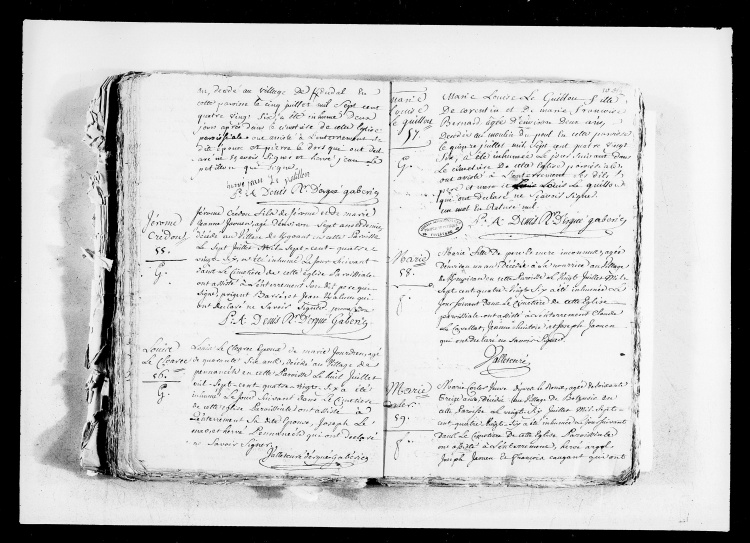 décédé au village de
cette paroisse le cinq juillet mil sept cent
quatre vingt six, a été inhumé deux
jours après dans le cimetière de cette Eglise
paroissiale ont assisté à l'enterrement
pierre le dors qui ont décl
aré ne sçavoir signer et hervé, jean Le
petillon qui signe,
hervé jean Le petillon
P. A. Denis Rr D'ergué gaberic
Jérome
Crédou
55.
G.
Jérôme Crédou fils de Jérôme et de marie
agé d'environ sept ans et demi,
décédé au Village de en cette Paroisse
Le Sept Juillet Mil Sept-cent quatre
vingt Six, a été inhumé Le Jour Suivant
dans Le Cimetière de cette Eglise Parroissiale
ont assisté à L'enterrement Son dit pere qui
Signe, Jean qui
ont déclaré ne Savoir Signer
P. A. Denis Rr D'ergué Gaberic
Louis
Le Cloarec
56.
G.
Louis Le Cloarec Epoux de marie Jourdren, agé
de quarante Six ans, décédé au Village de
en cette Paroisse Le huit Juillet
mil Sept-cent quatre-vingt Six a été
inhumé Le Jour Suivant dans Le Cimetière
de cette Eglise Parroissiale ont assisté à
L'enterrement Sa dite Epouse, Joseph Le
et hervé qui ont déclaré
ne Savoir Signer
d'ergué-Gaberic
Marie
Louise
Le guillou
57.
G.
Marie Louise Le Guillou fille
De corentin et De marie françoise
Bernard agée d'environ Deux ans,
Décédée au moulin du en cette paroisse
le juillet mil
Sept cent quatre vingt
Six, a été inhumée Le jour suivant dans
Le cimetière De cette Eglise paroissiale,
ont assisté à L'enterrement Ses dits
père et mere et Louis Le guillou,
qui ont déclaré ne sçavoir Signer
un mot en Rature nul.
P. A. Denis Rr D'ergué gaberic
Marie
58.
G.
Marie fille de pere et mere inconnus, agée
d'environ un an Décédée à La nourrice au Village
de en cette Paroisse Le Vingt Juillet Mil
Sept cent quatre Vingt Six a été inhumée Le
jour Suivant dans Le Cimetière de cette Eglise
parroissiale ont assisté à L'enterrement Claude
Le et Joseph Jaouen
qui ont déclaré ne Savoir Signer
Marie
59.
G.
Marie agée de Soixante
Treize ans, Décédée au Village de en
cette Paroisse Le vingt Six Juillet Mil Sept-
cent quatre Vingt-Six a été inhumée Le jour Suivant
dans Le Cimetière de cette Eglise Parroissiale
ont assisté à L'enterrement, hervé
Joseph Jaouen Et françois qui ont